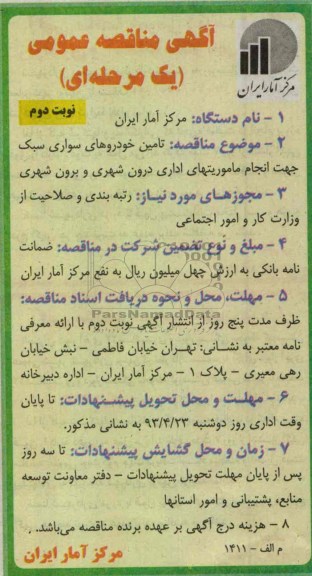 آگهی مناقصه عمومی
(یک مرحله‌ای)
مرکز آمار ایران
نوبت دوم
۱ - نام دستگاه: مرکز آمار ایران
۲ - موضوع مناقصه: تامین خودروهای سواری سبک
جهت انجام ماموریتهای اداری درون شهری و برون شهری
۳ - مجوزهای مورد نیاز: رتبه بندی و صلاحیت از
وزارت کار و امور اجتماعی
۴ - مبلغ و نوع تضمین شرکت در مناقصه: ضمانت
نامه بانکی به ارزش چهل میلیون ریال به نفع مرکز آمار ایران
۵ - مهلت، محل و نحوه دریافت اسناد مناقصه:
ظرف مدت پنج روز از انتشار آگهی نوبت دوم با ارائه معرفی
نامه معتبر به نشانی: تهران خیابان فاطمی - نبش خیابان
رهی معیری - پلاک ۱ - مرکز آمار ایران - اداره دبیرخانه
۶ - مهلت و محل تحویل پیشنهادات: تا پایان
وقت اداری روز دوشنبه ۹۳/۴/۲۳ به نشانی مذکور.
۷ - زمان و محل گشایش پیشنهادات: تا سه روز
پس از پایان مهلت تحویل پیشنهادات - دفتر معاونت توسعه
منابع، پشتیبانی و امور استانها
۸ - هزینه درج آگهی بر عهده برنده مناقصه می‌باشد.
م الف - ۱۴۱۱
مرکز آمار ایران
ParsNamadData